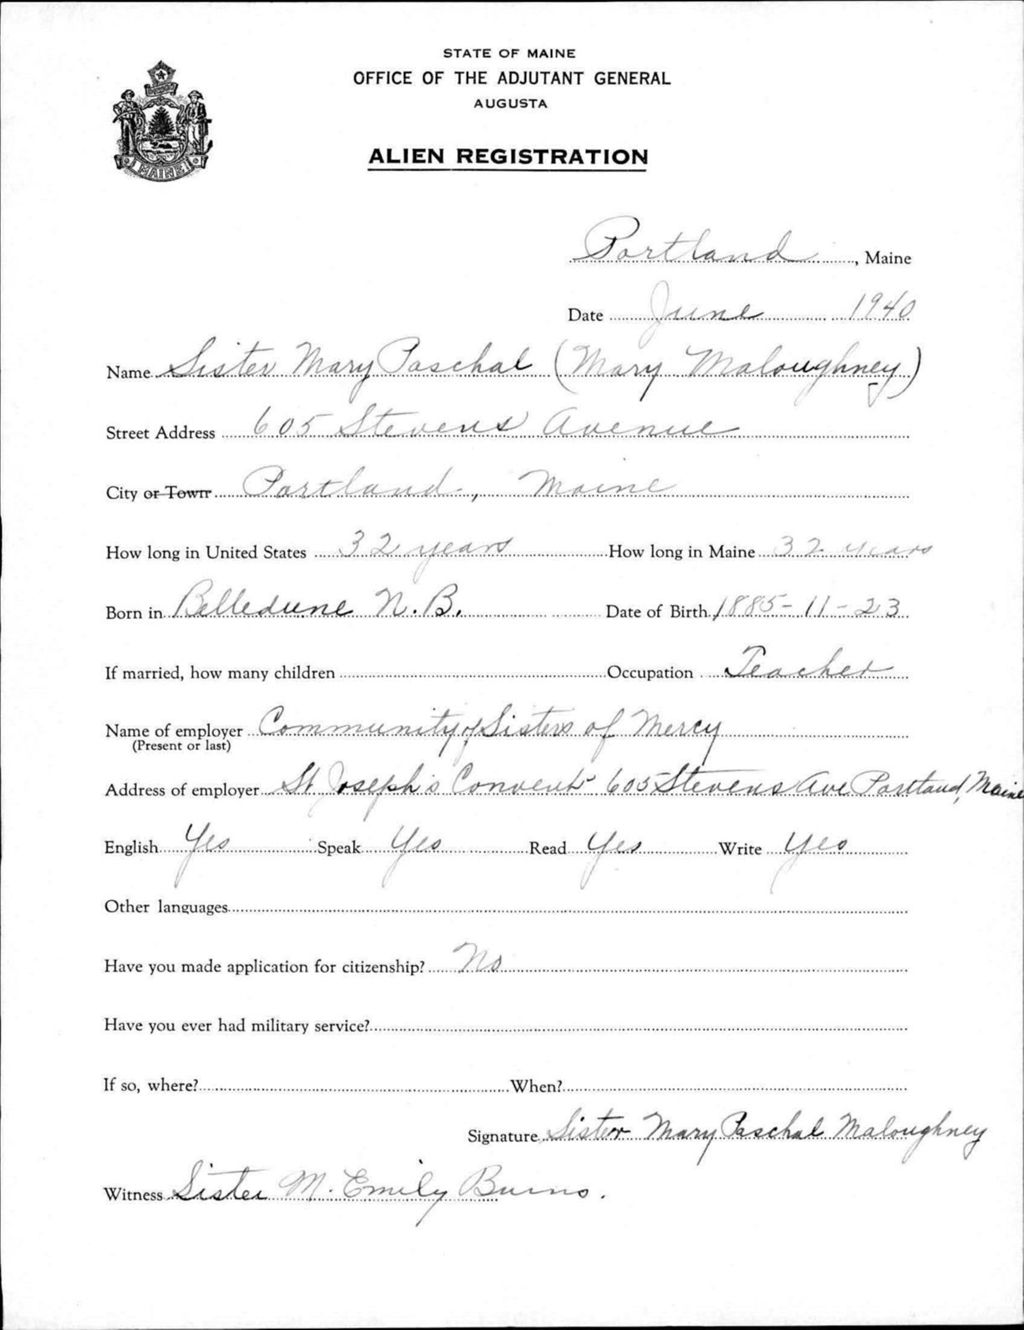 STATE OF MAINE
OFFICE OF THE ADJUTANT GENERAL
AUGUSTA
ALIEN REGISTRATION
MAINE
Portland, Maine
Date June 1940
Name Sister Mary Paschal (Mary Maloughney)
Street Address 605 Stevens Avenue
City or Town Portland, Maine
How long in United States 32 years How long in Maine 32 years
Born in Belledune N.B. Date of Birth 1885-11-23
If married, how many children Occupation Teacher
Name of employer Community of Sisters of Mercy
(Present or last)
Address of employer St Joseph's Convent 605 Stevens Ave Portland, Maine
English Yes Speak Yes Read Yes Write Yes
Other languages
Have you made application for citizenship? No
Have you ever had military service?
If so, where? When?
Signature Sister Mary Paschal Maloughney
Witness Sister M. Emily Burns.